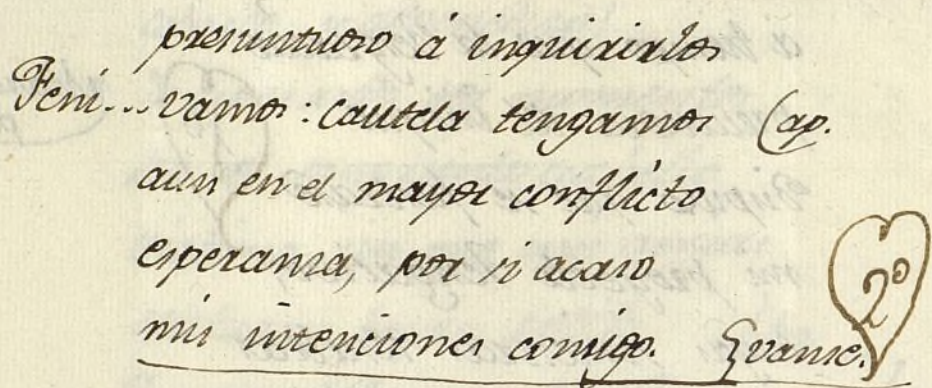 presuntuoso à inquirirlos
Feni... vamos: cautela tengamos (ap.
aun en el mayor conflicto
esperanza, por si acaso
mis intenciones consigo. {vanse.
2º